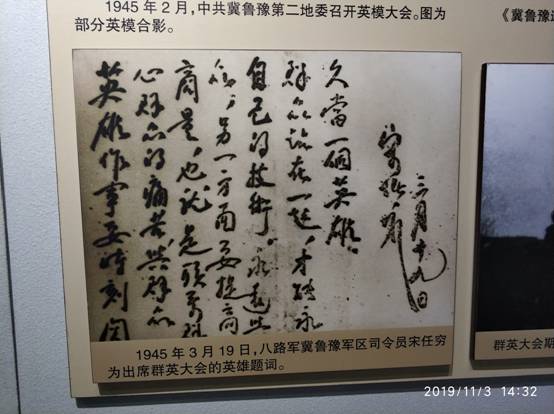 1945年2月，中共冀鲁豫第二地委召开英模大会。图为
部分英模合影。
《冀鲁豫
英雄作事要時刻関
心群众的痛苦與群众
商量，也就是
众，另一方面要提高
自己的技術，永遠
群众站在一起，才能永
久當一個英雄。
宋任窮
三月十九日
1945年3月19日，八路军冀鲁豫军区司令员宋任穷
为出席群英大会的英雄题词。
群英大会期
2019/11/3 14:32